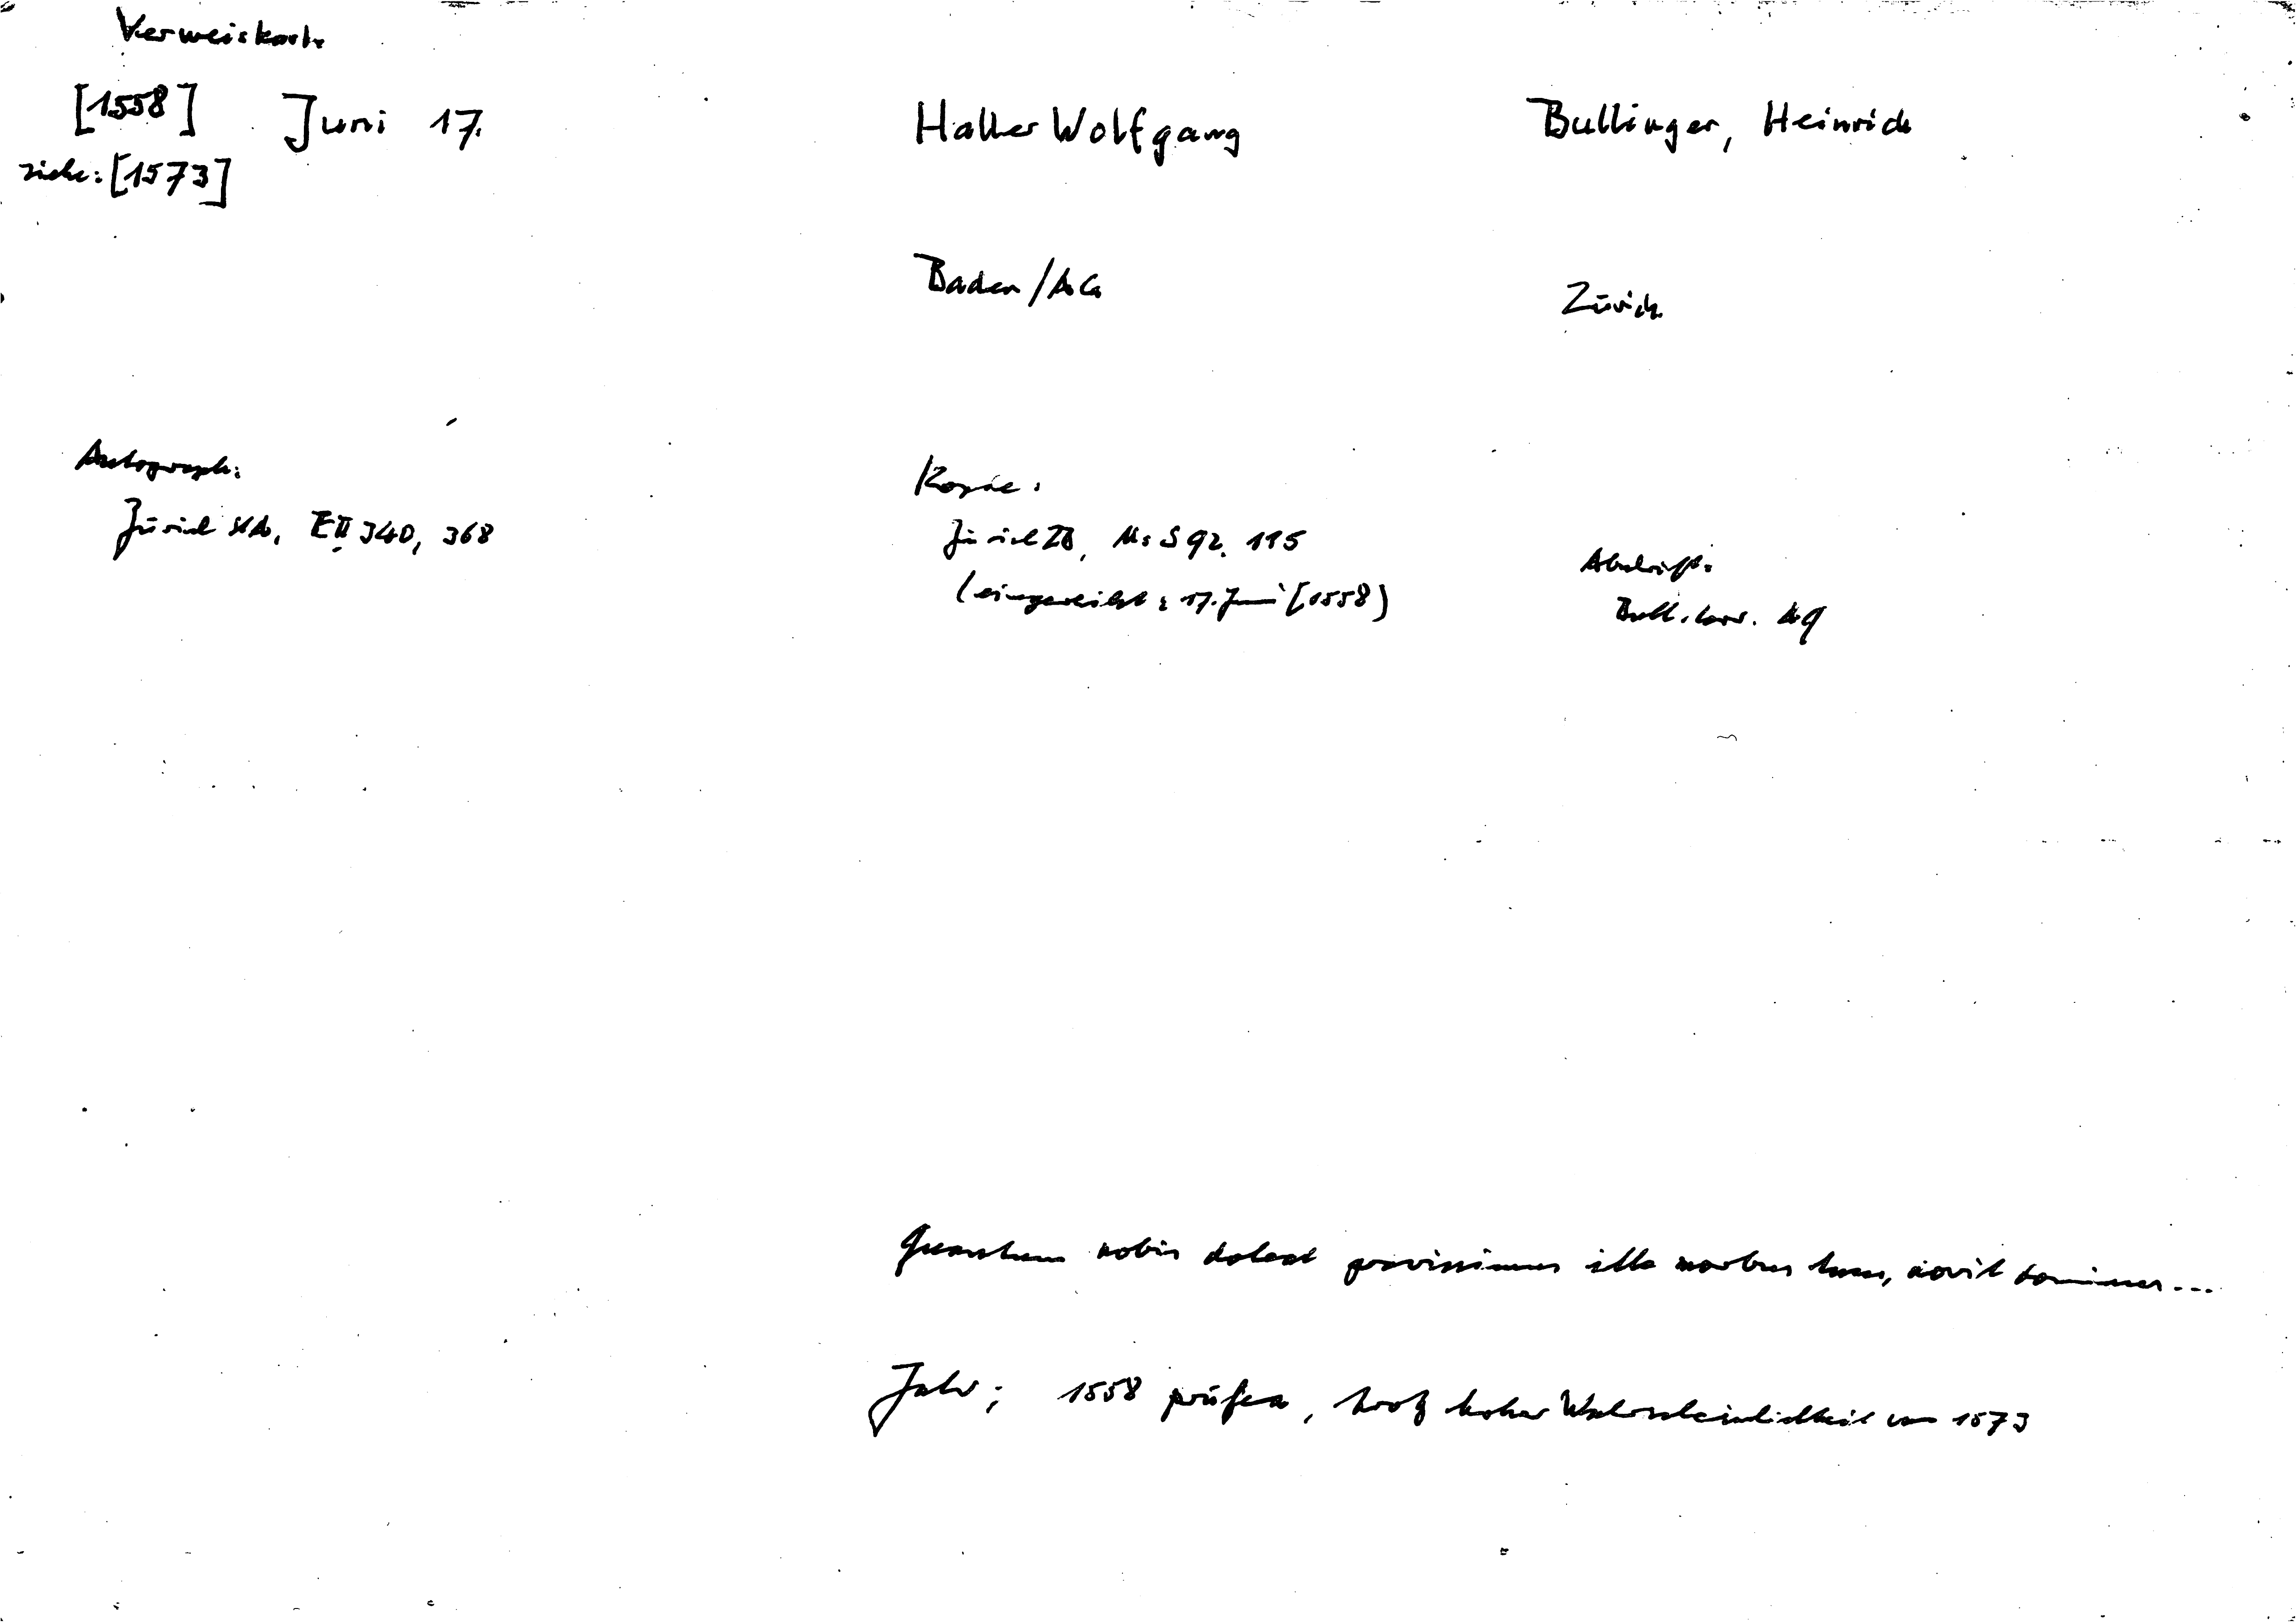 Verweiskarte
[1558] Juni 17.
siehe: [1573]
Haller Wolfgang
Bullinger, Heinrich
Baden/AG
Zürich
Autograph:
Zürich StA, E II 340, 368
Kopie:
Zürich ZB, Ms S 92, 115
(eingereiht: 17. Juni [1558)
Abschrift:
Bull. Corr. AG
Quantum nobis doleat gravissimus ille morbus tuus, novit dominus...
Jahr; 1558 prüfen, trotz hoher Wahrscheinlichkeit von 1573